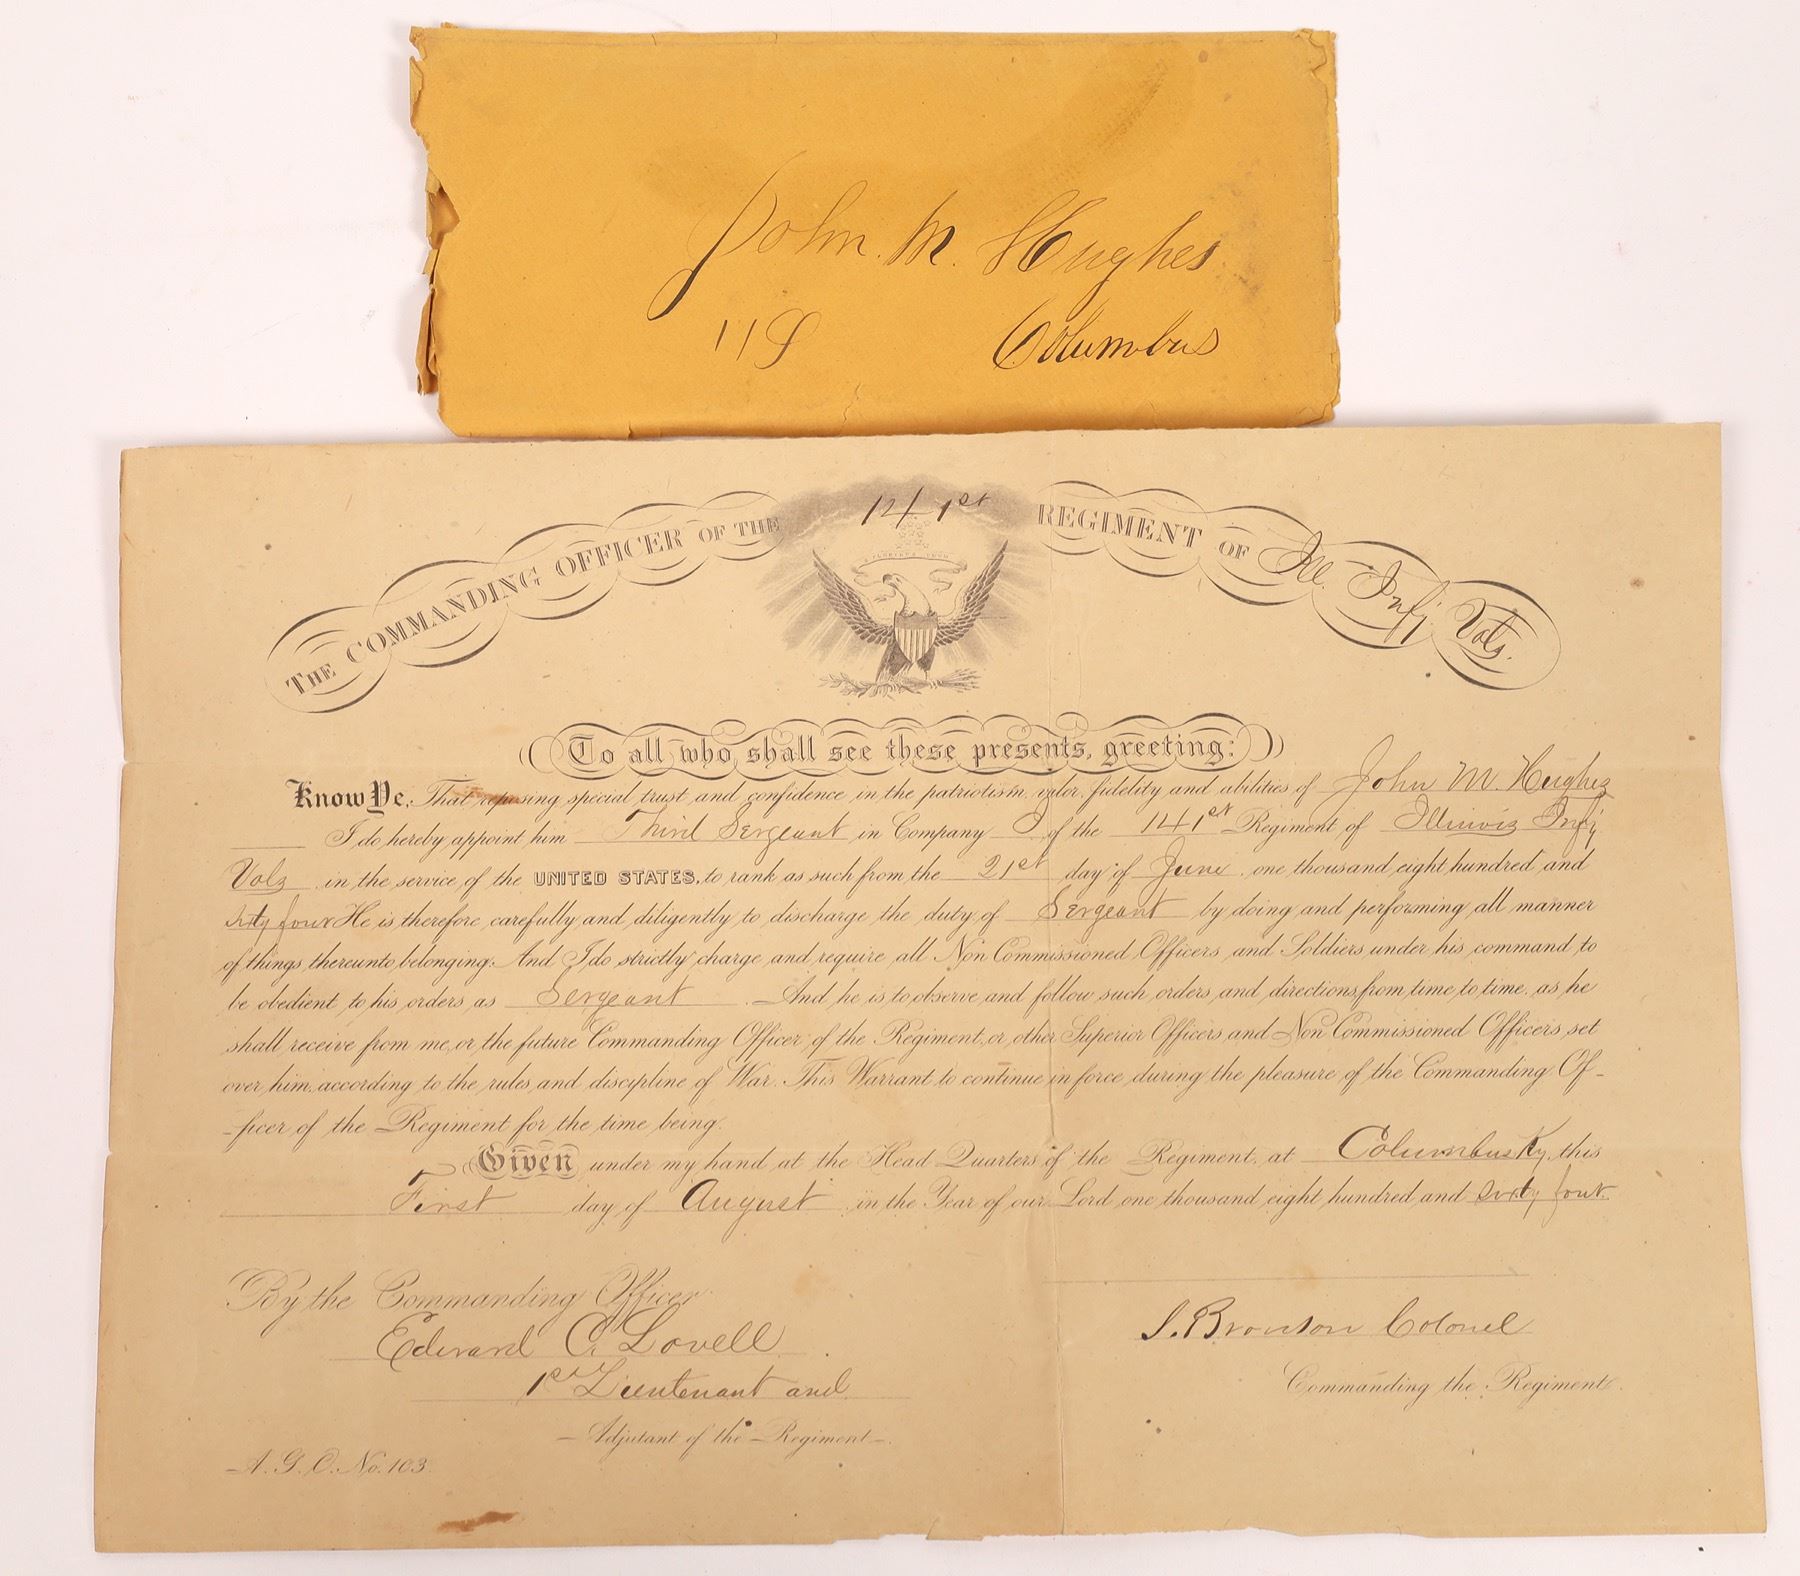 John. M. Hughes
Columbus
THE COMMANDING OFFICER OF THE 141st REGIMENT OF Ill. Infy. Vols.
To all who shall see these presents, greeting:
Know Ye, That reposing special trust and confidence in the patriotism, valor, fidelity and abilities of John M. Hughes
I do hereby appoint him Third Sergeant in Company of the 141st Regiment of Illinois Infy
Vols in the service of the UNITED STATES, to rank as such from the 21st day of June one thousand eight hundred and
sixty four He is therefore carefully and diligently to discharge the duty of Sergeant by doing and performing all manner
of things thereunto belonging. And I do strictly charge and require all Non Commissioned Officers and Soldiers under his command to
be obedient to his orders as Sergeant. And he is to observe and follow such orders and directions from time to time, as he
shall receive from me, or the future Commanding Officer of the Regiment, or other Superior Officers and Non Commissioned Officers set
over him, according to the rules and discipline of War. This Warrant to continue in force during the pleasure of the Commanding Of-
-ficer of the Regiment for the time being.
Given under my hand at the Head Quarters of the Regiment, at Columbus Ky, this
First day of August in the Year of our Lord one thousand eight hundred and sixty four.
By the Commanding Officer
Edward C. Lovell
1st Lieutenant and
Adjutant of the Regiment.
S. Bronson Colonel
Commanding the Regiment.
A. G. O. No. 103.